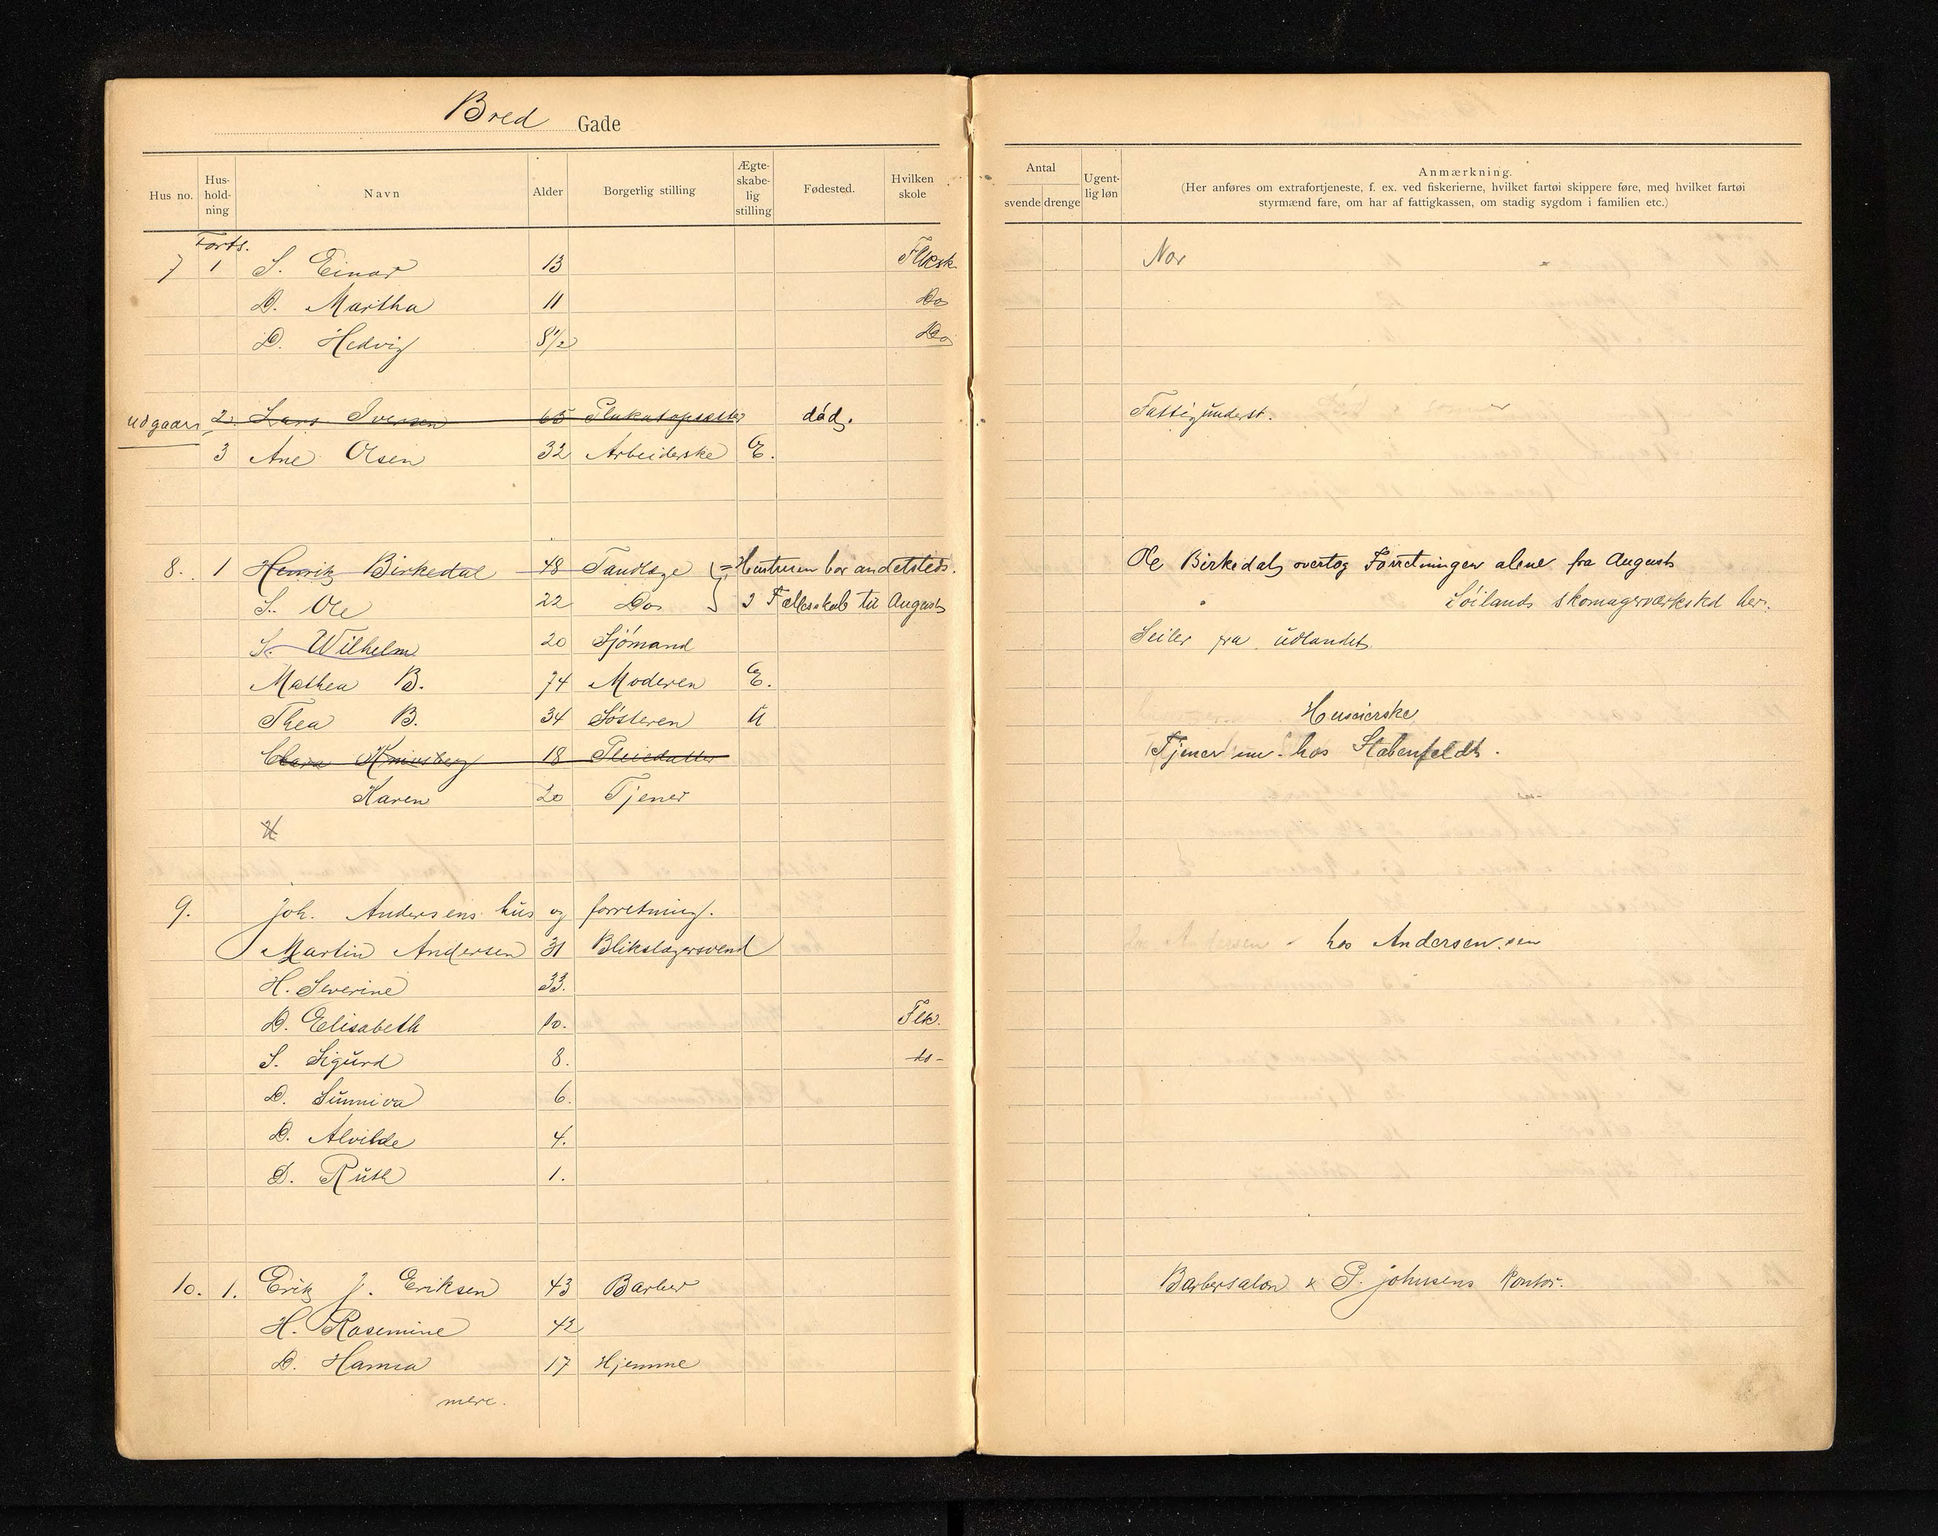 Bred Gade
Hus no. Hus-hold-ning Navn Alder Borgerlig stilling Ægte-skabe-lig stilling Fødested. Hvilken skole
Antal svende drenge Ugent-lig løn Anmærkning.
(Her anføres om extrafortjeneste, f. ex. ved fiskerierne, hvilket fartøi skippere føre, med hvilket fartøi
styrmænd fare, om har af fattigkassen, om stadig sygdom i familien etc.)
Forts.
7 1 S. Einar 13 Flksk Nor
D. Martha 11 Do
D. Hedvig 8 1/2 Do
udgaar 2. Lars Iversen 65 Plakatopsætter død. Fattigunderst.
3 Ane Olsen 32 Arbeiderske E.
8. 1 Henrik Birkedal 48 Tandlæge = Hustruen bor andetsteds. Ole Birkedal overtog Forretningen alene fra August
S. Ole 22 Do I Fællesskab til August Löilands skomagerværksted her.
S. Wilhelm 20 Sjömand Seiler fra udlandet
Mathea B. 74 Moderen E.
Thea B. 34 Sösteren U Huseierske
Clara 18 Pleiedatter Tjener nu hos Stabenfeldt.
Karen 20 Tjener
9. Joh. Andersens hus og forretning.
Martin Andersen 31 Blikslagersvend hos Andersen sen
H. Severine 33.
D. Elisabeth 10. Flk.
S. Sigurd 8. do -
D. Sunniva 6.
D. Alvilde 4.
D. Ruth 1.
10. 1. Erik J. Eriksen 43 Barber Barbersalon & P. Johnsens Kontor.
H. Rosemine 42
D. Hanna 17 Hjemme
mere.